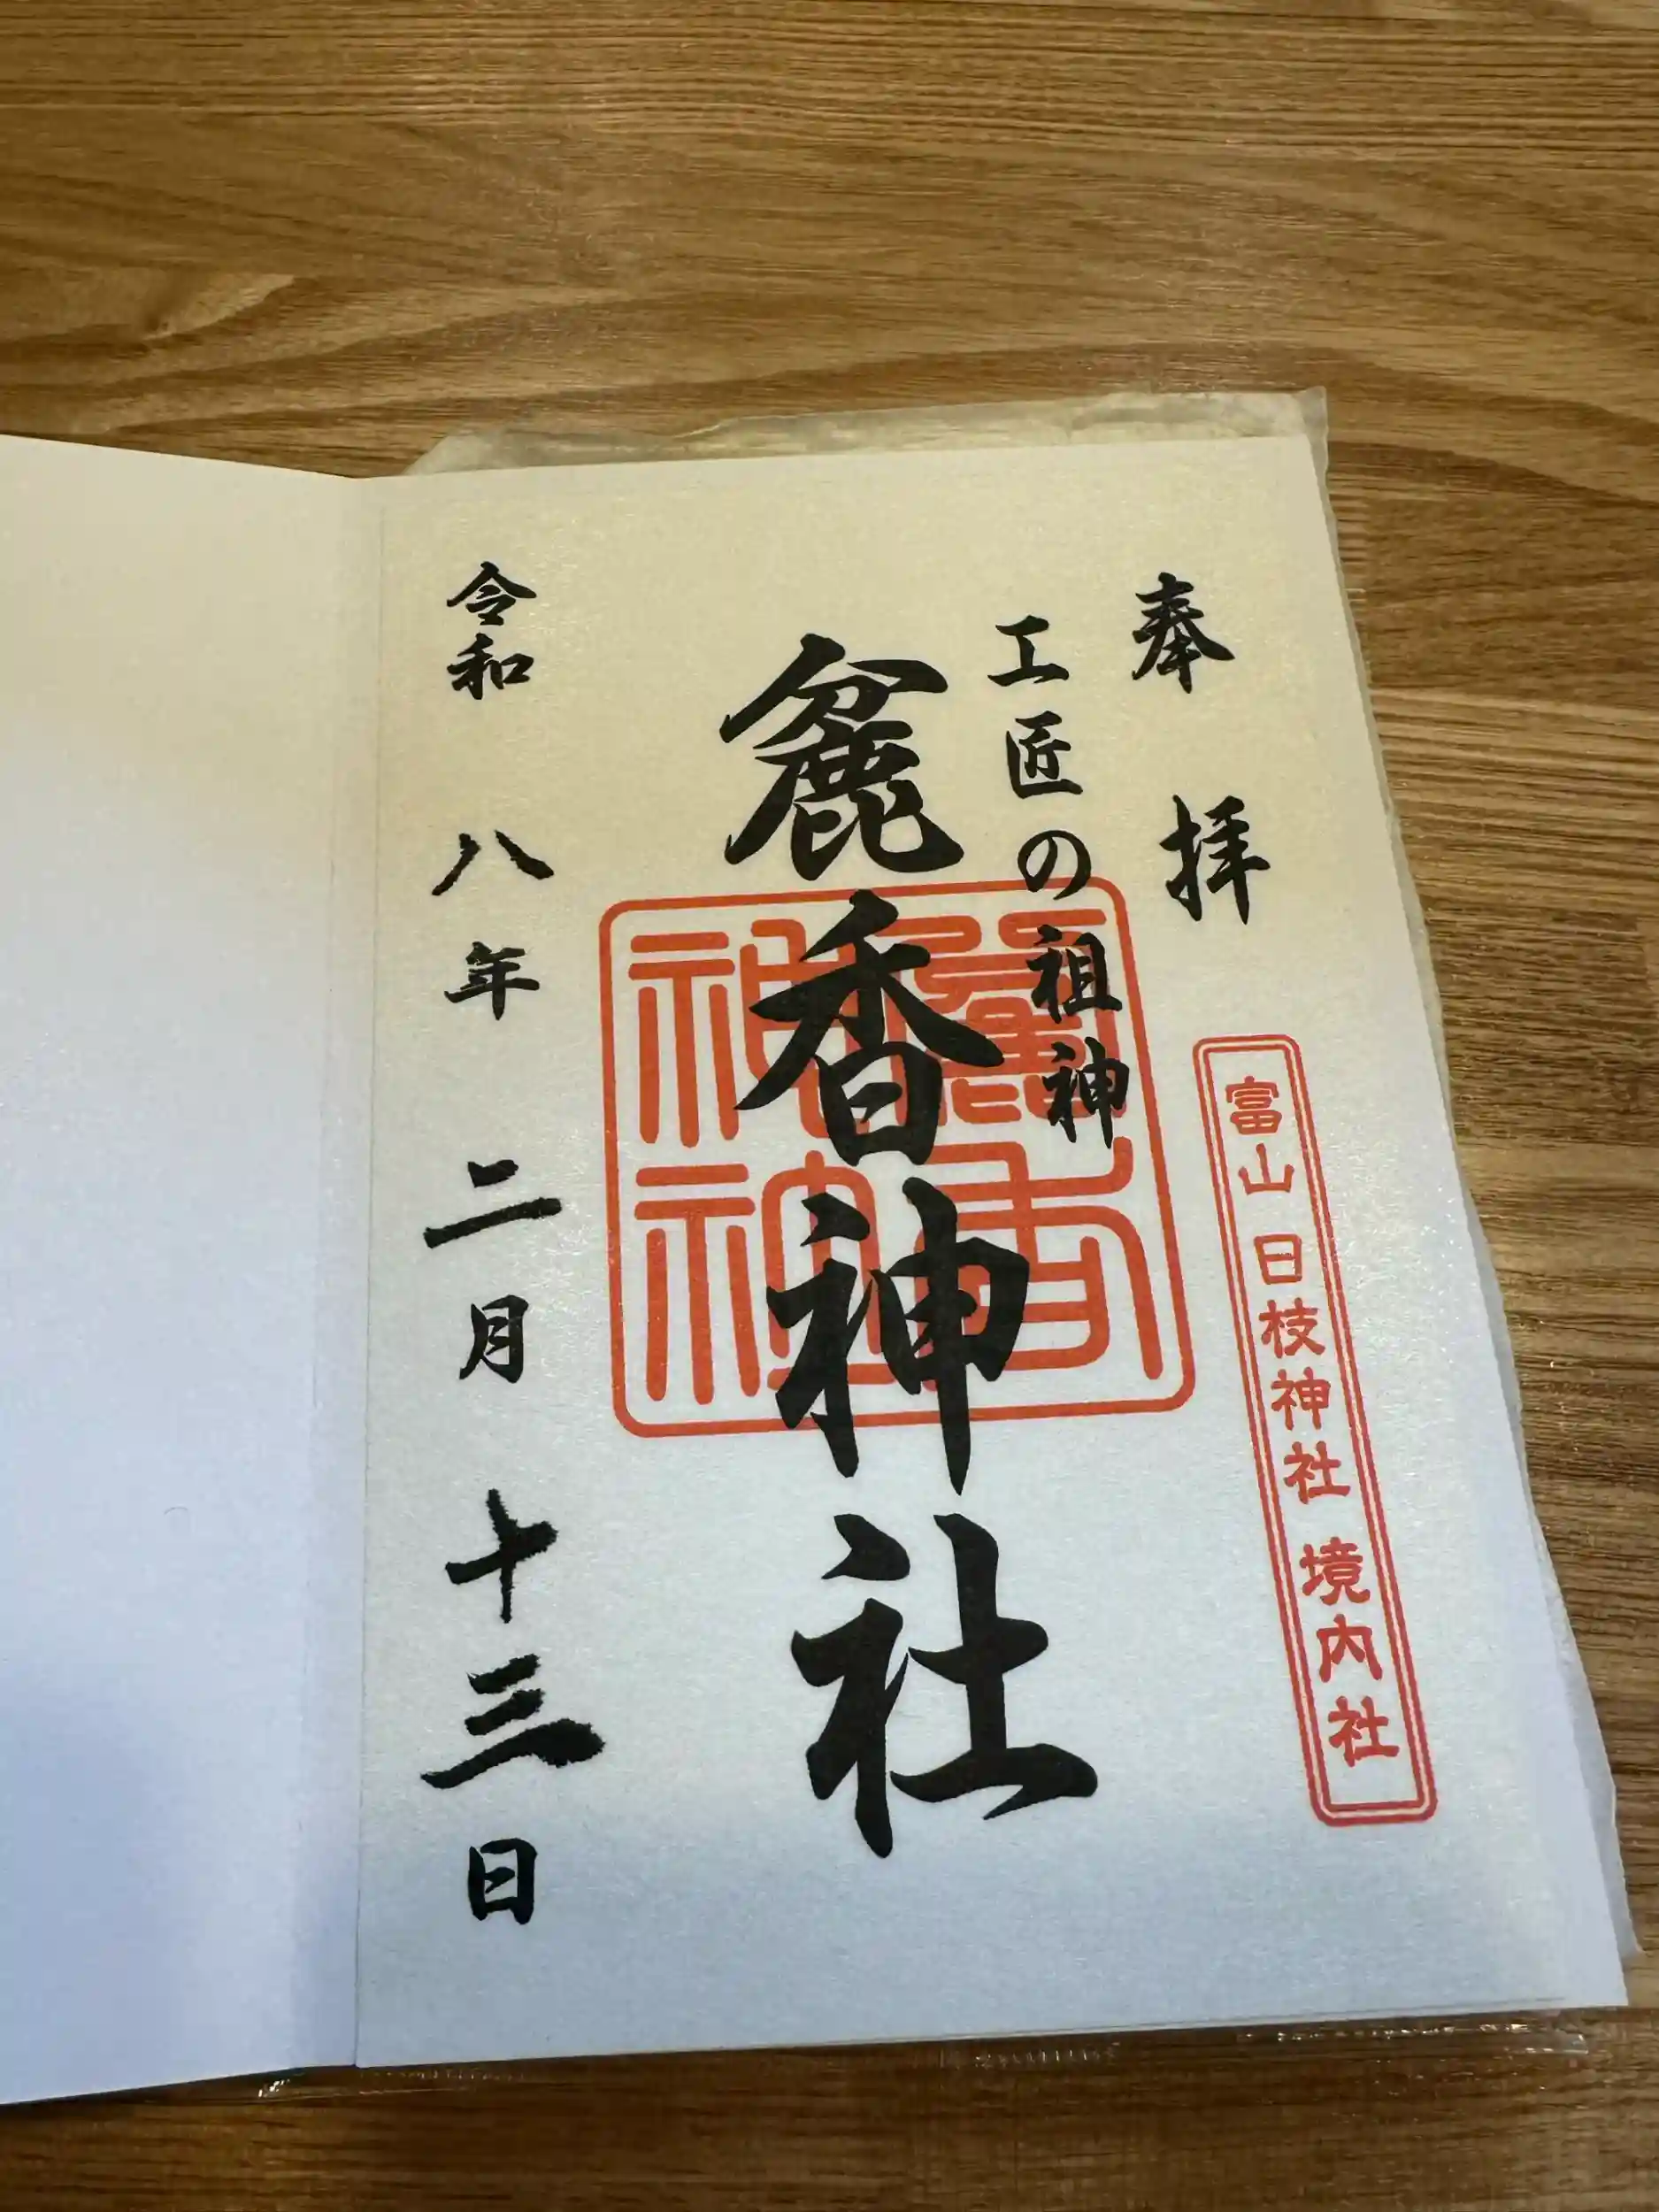 奉拝
富山 日枝神社 境内社
工匠の祖神
麁香神社
令和 八年 二月 十三日